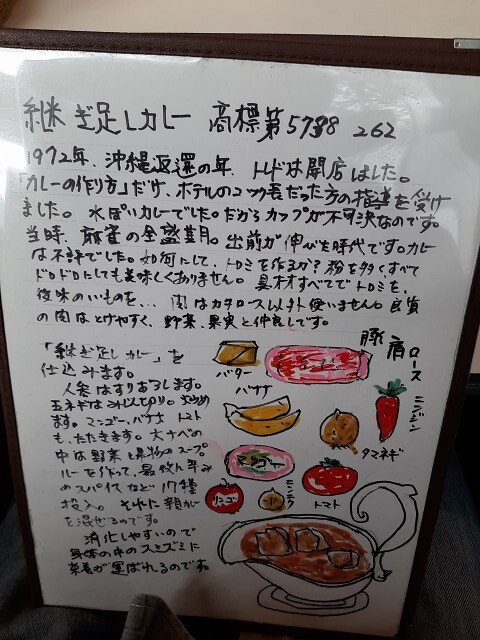 継ぎ足しカレー 商標第5798262
1972年、沖縄返還の年、トドは開店しました。
「カレーの作り方」だけ、ホテルのコック長だった方の指導を受け
ました。水ぽいカレーでした。だからカップが不可決なのです。
当時、麻雀の全盛期。出前が伸びた時代です。カレー
は不評でした。如何にして、トロミを作るか？粉を多くすべて
ドロドロにしても美味しくありません。具材すべてでトロミを、
後味のいいものを... 肉はカタロース以外使いません。良質
の肉はとけやすく、野菜、果実と仲良しです。
「継ぎ足しカレー」を
仕込みます。
人参はすりおろします。
玉ネギはみじん切り。
ます。マンゴー、バナナ トマト
も、たたきます。大ナベの
中は野菜と果物のスープ。
ルーを作って、
のスパイスなど17種
投入。それに親カレー
を混ぜるのです。
消化しやすいので
身体の中のスミズミに
栄養が運ばれるのです。
豚肩ロース
バター
バナナ
ニンジン
タマネギ
マンゴー
リンゴ
ニンニク
トマト